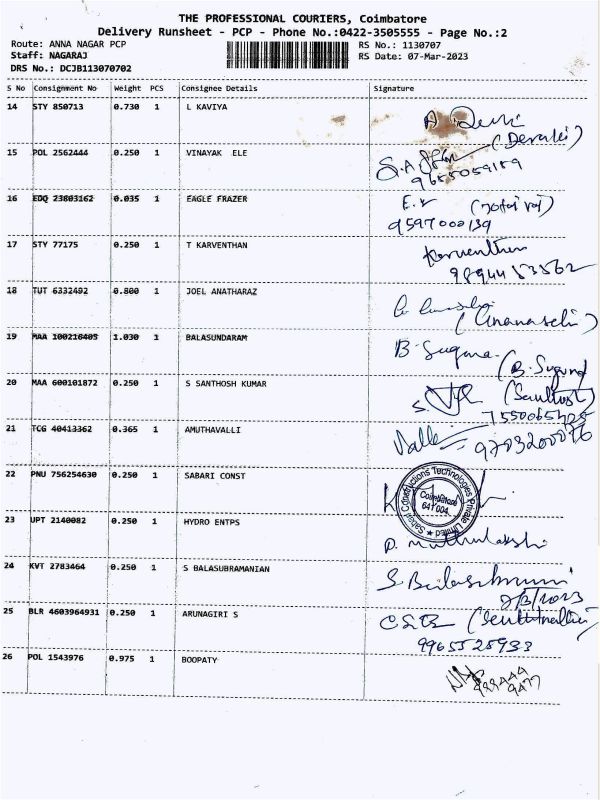 THE PROFESSIONAL COURIERS, Coimbatore
Delivery Runsheet - PCP - Phone No.:0422-3505555 - Page No.:2
Route: ANNA NAGAR PCP
RS No.: 1130707
Staff: NAGARAJ
RS Date: 07-Mar-2023
DRS No.: DCJB113070702
S No Consignment No Weight PCS Consignee Details Signature
14 STY 850713 0.730 1 L KAVIYA
15 POL 2562444 0.250 1 VINAYAK ELE
9655059189
16 EDQ 23803162 0.035 1 EAGLE FRAZER
9597000139
17 STY 77175 0.250 1 T KARVENTHAN
Karventhan
9894453562
18 TUT 6332492 0.800 1 JOEL ANATHARAZ
19 MAA 100216405 1.030 1 BALASUNDARAM
B. Suguna
20 MAA 600101872 0.250 1 S SANTHOSH KUMAR
21 TCG 40413362 0.365 1 AMUTHAVALLI
Valli
22 PNU 756254630 0.250 1 SABARI CONST
Sabari Constructions Technologies Private Limited
Coimbatore
641 004.
23 UPT 2140082 0.250 1 HYDRO ENTPS
24 KVT 2783464 0.250 1 S BALASUBRAMANIAN
25 BLR 4603964931 0.250 1 ARUNAGIRI S
9965528933
26 POL 1543976 0.975 1 BOOPATY